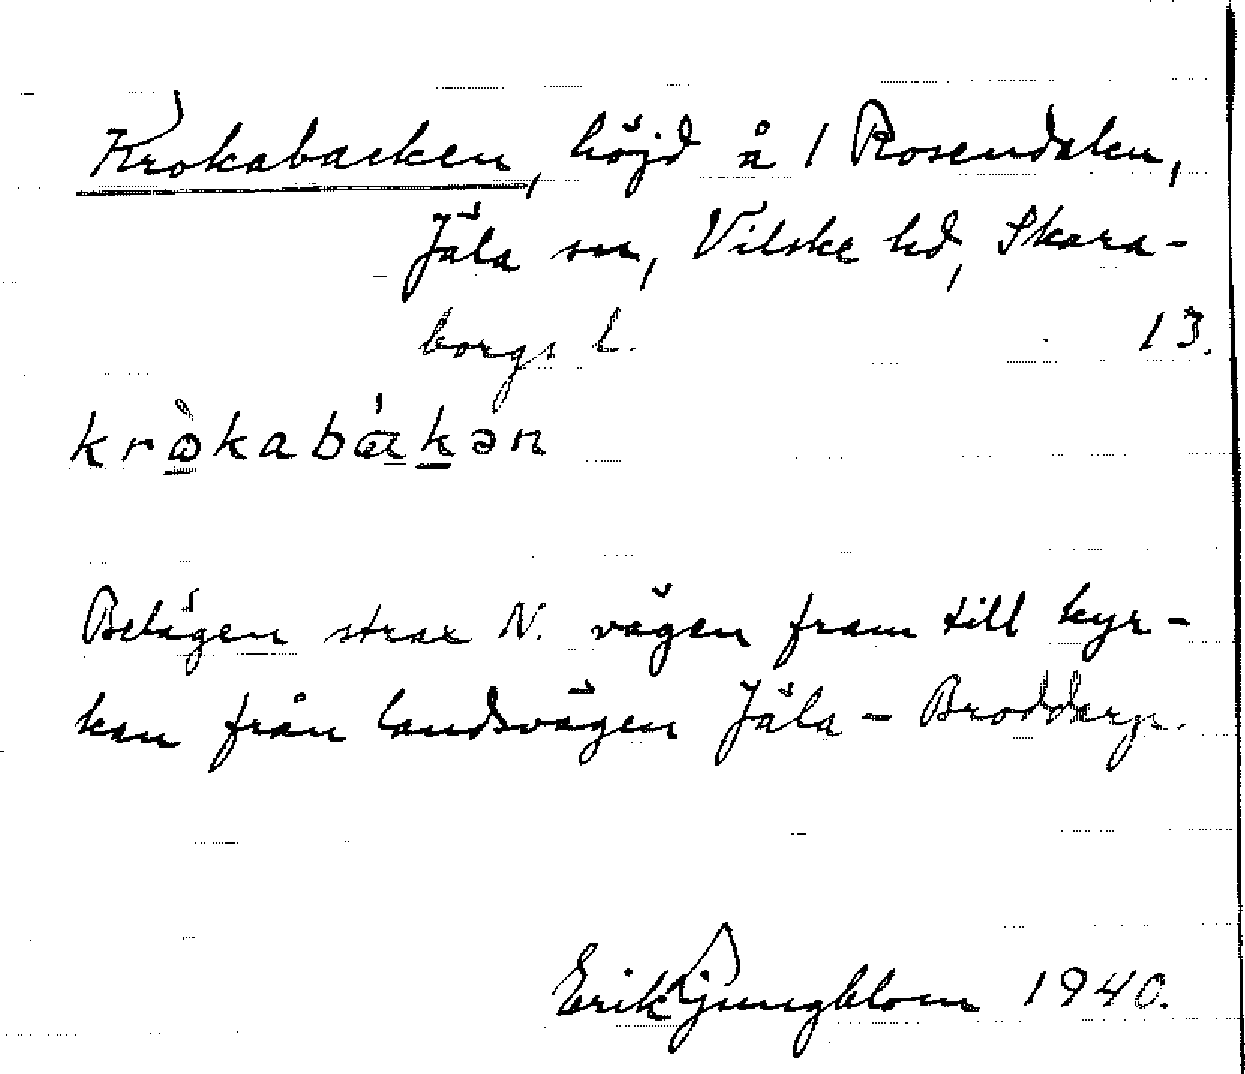 Krokabacken, höjd å 1 Rosendalen,
Jäla sn, Vilske hd, Skara-
borgs l. 13.
kròkabákən
Belägen strax N. vägen fram till kyr-
kan från landsvägen Jäla - Broddarp.
Erik Ljungblom 1940.